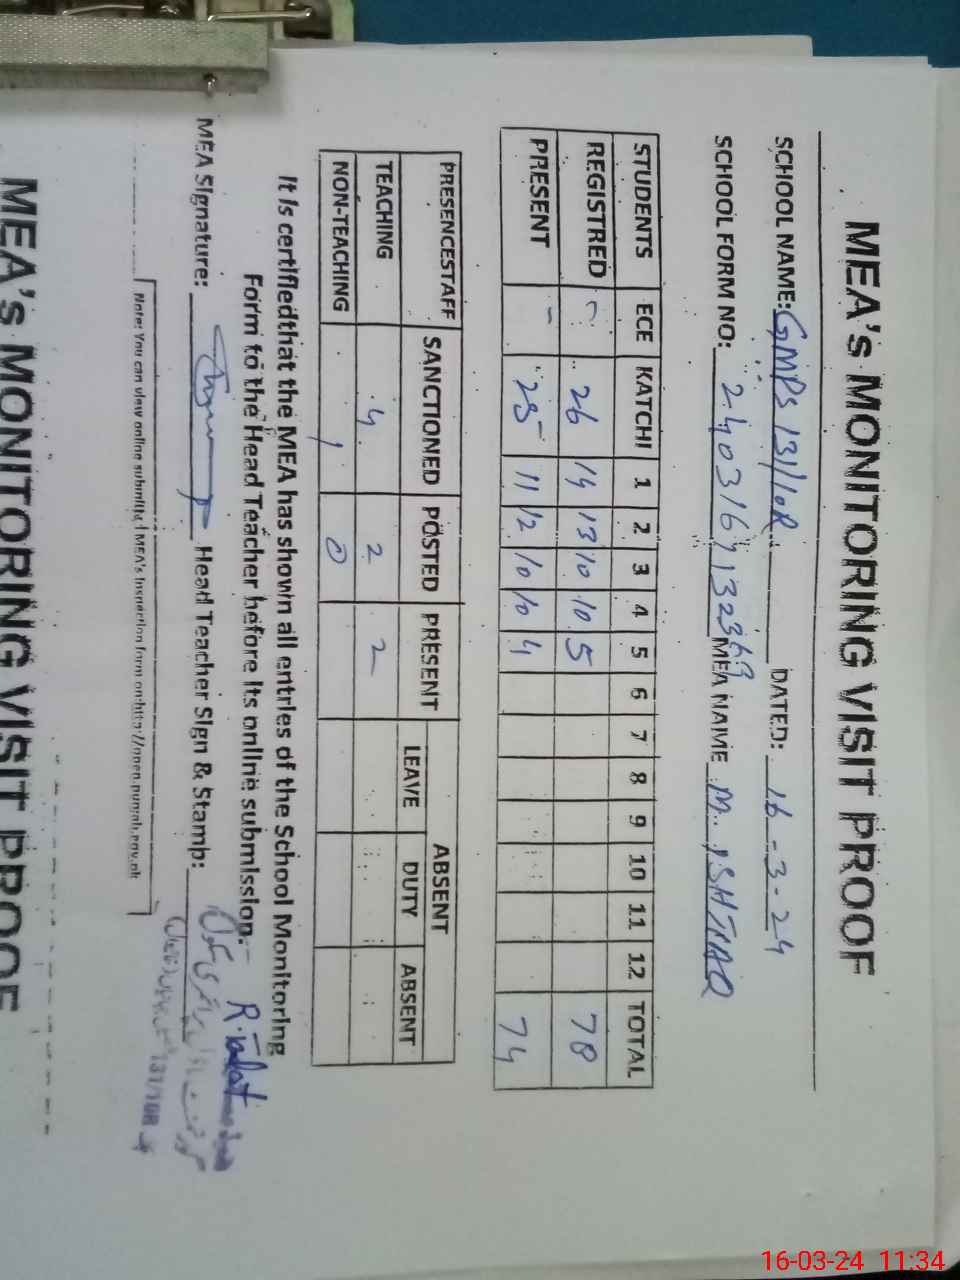 MEA's MONITORING VISIT PROOF
SCHOOL NAME: GMPS 131/10R DATED: 16-3-24
SCHOOL FORM NO: MEA NAME M. ISHTIAQ
STUDENTS ECE KATCHI 1 2 3 4 5 6 7 8 9 10 11 12 TOTAL
REGISTRED - 26 14 13 10 10 5 78
PRESENT - 25 11 12 10 10 4 74
PRESENCESTAFF SANCTIONED POSTED PRESENT ABSENT
LEAVE DUTY ABSENT
TEACHING 4 2 2
NON-TEACHING 1 0
It is certifiedthat the MEA has shown all entries of the School Monitoring
Form to the Head Teacher before its online submission.
MEA Signature: Head Teacher Sign & Stamb: R.Talat
131/10R
Note: You can view online submitted MEA's Inspection form on:http://open.punjab.gov.pk
MEA's MONITORING VISIT PROOF
16-03-24 11:34